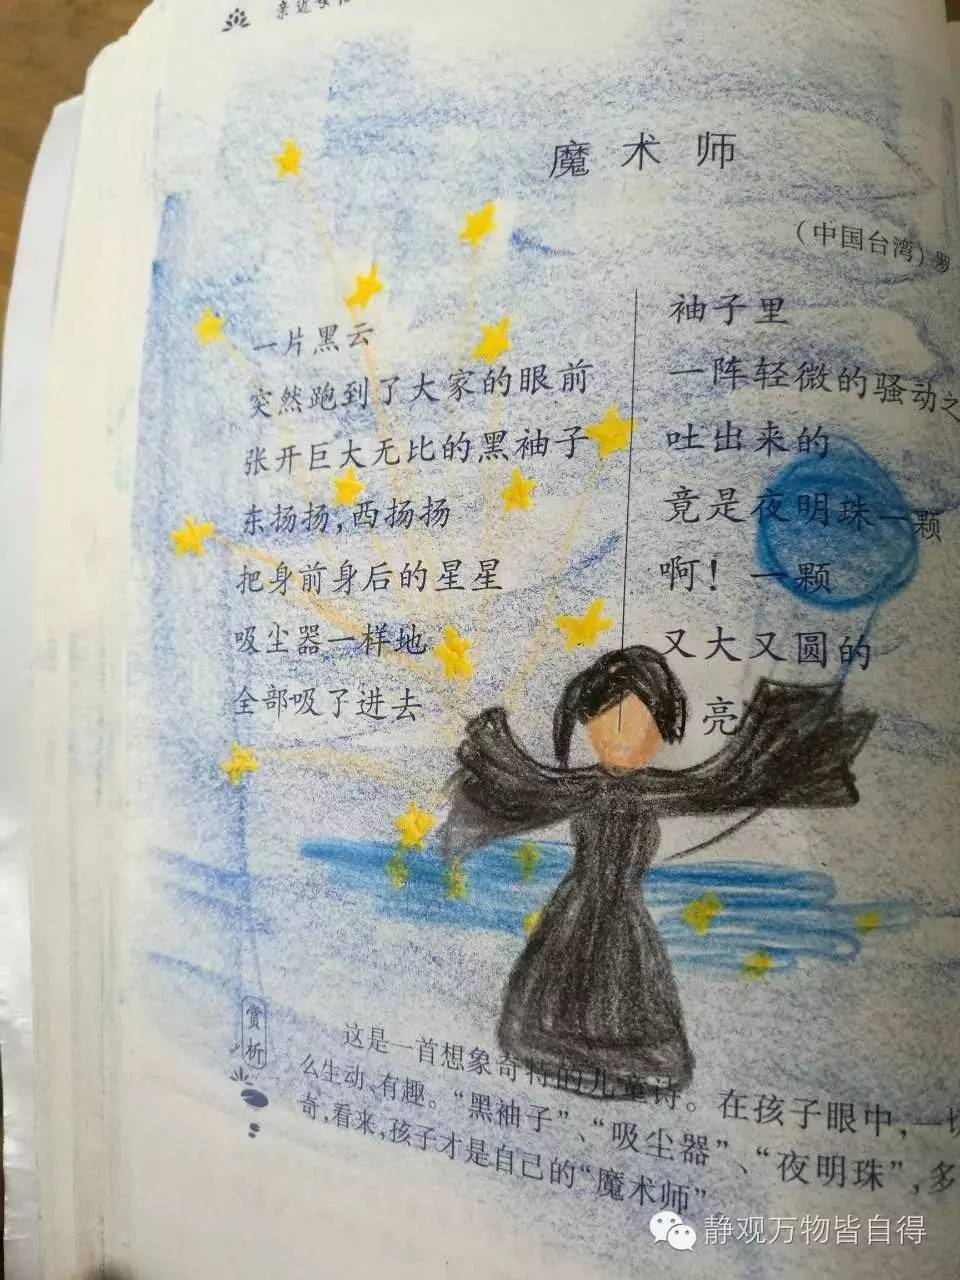 亲近母
魔术师
（中国台湾）
一片黑云
突然跑到了大家的眼前
张开巨大无比的黑袖子
东扬扬，西扬扬
把身前身后的星星
吸尘器一样地
全部吸了进去
袖子里
一阵轻微的骚动之
吐出来的
竟是夜明珠一颗
啊！一颗
又大又圆的
月亮
赏析
这是一首想象奇特的儿童诗。在孩子眼中，一切
么生动、有趣。“黑袖子”、“吸尘器”、“夜明珠”，多
奇，看来，孩子才是自己的“魔术师”
静观万物皆自得